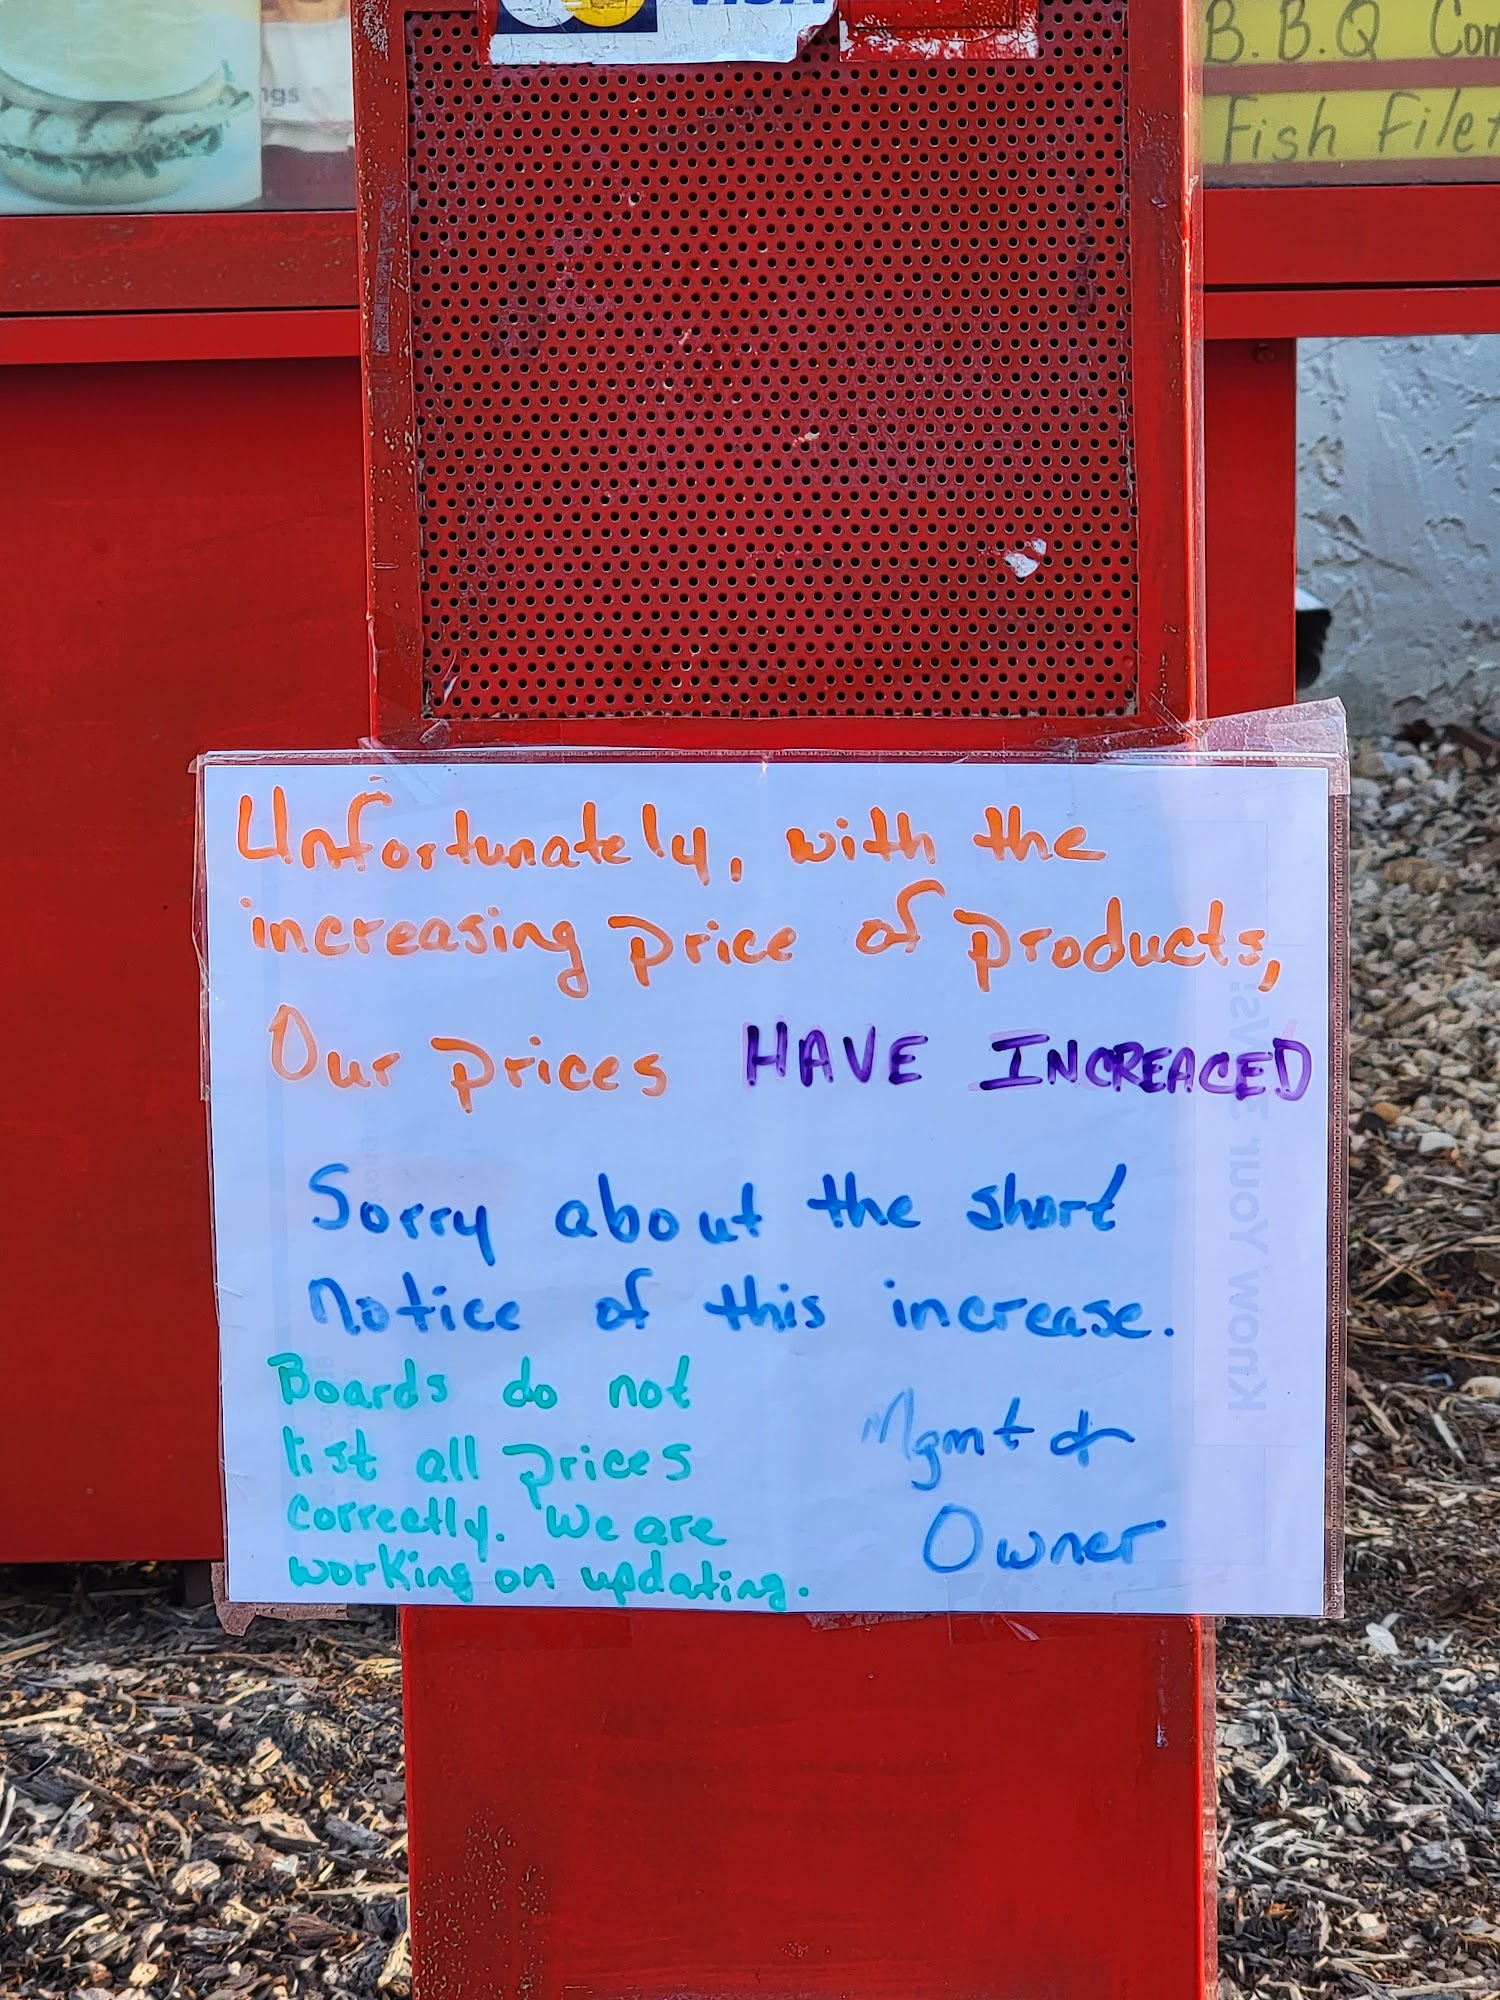 VISA
B.B.Q Com
Fish Filet
Unfortunately, with the
increasing price of products,
Our prices HAVE INCREACED
Sorry about the short
Notice of this increase.
Boards do not
list all prices
correctly. We are
working on updating.
Mgmt &
Owner
Know Your 3 Ws!